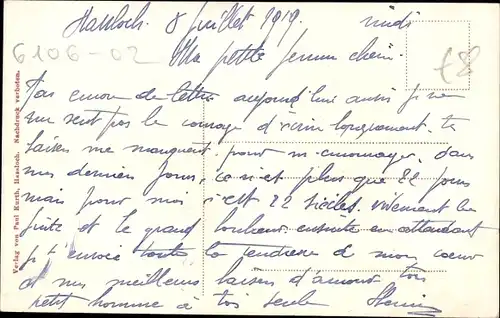 Hassloch. 8 juillet 1919. midi
6106-02
Ma petite femme chérie.
£8
Pas encore de lettre aujourd'hui aussi je ne
me sent pas le courage d'écrire longuement. te
baisers me manquent pour m'encourager, dans
mes derniers jours, ce n'est plus que 22 jours
mais pour moi c'est 22 siècles. vivement la
et le grand bonheur. ensuite en attendant
je t'envoie toute la tendresse de mon cœur
et mes meilleurs baisers d'amour ton
petit homme à toi seule
Verlag von Paul Kurth, Hassloch. Nachdruck verboten.